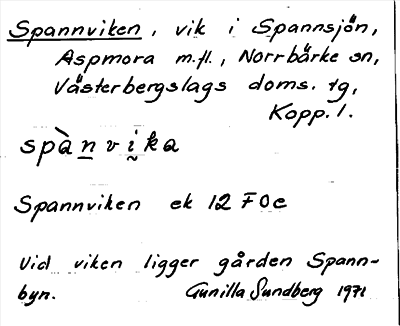 Spannviken, vik i Spannsjön,
Aspmora m.fl., Norrbärke sn,
Västerbergslags doms. tg,
Kopp. l.
spànvika
Spannviken ek 12 F 0 e
Vid viken ligger gården Spann-
byn. Gunilla Sundberg 1971